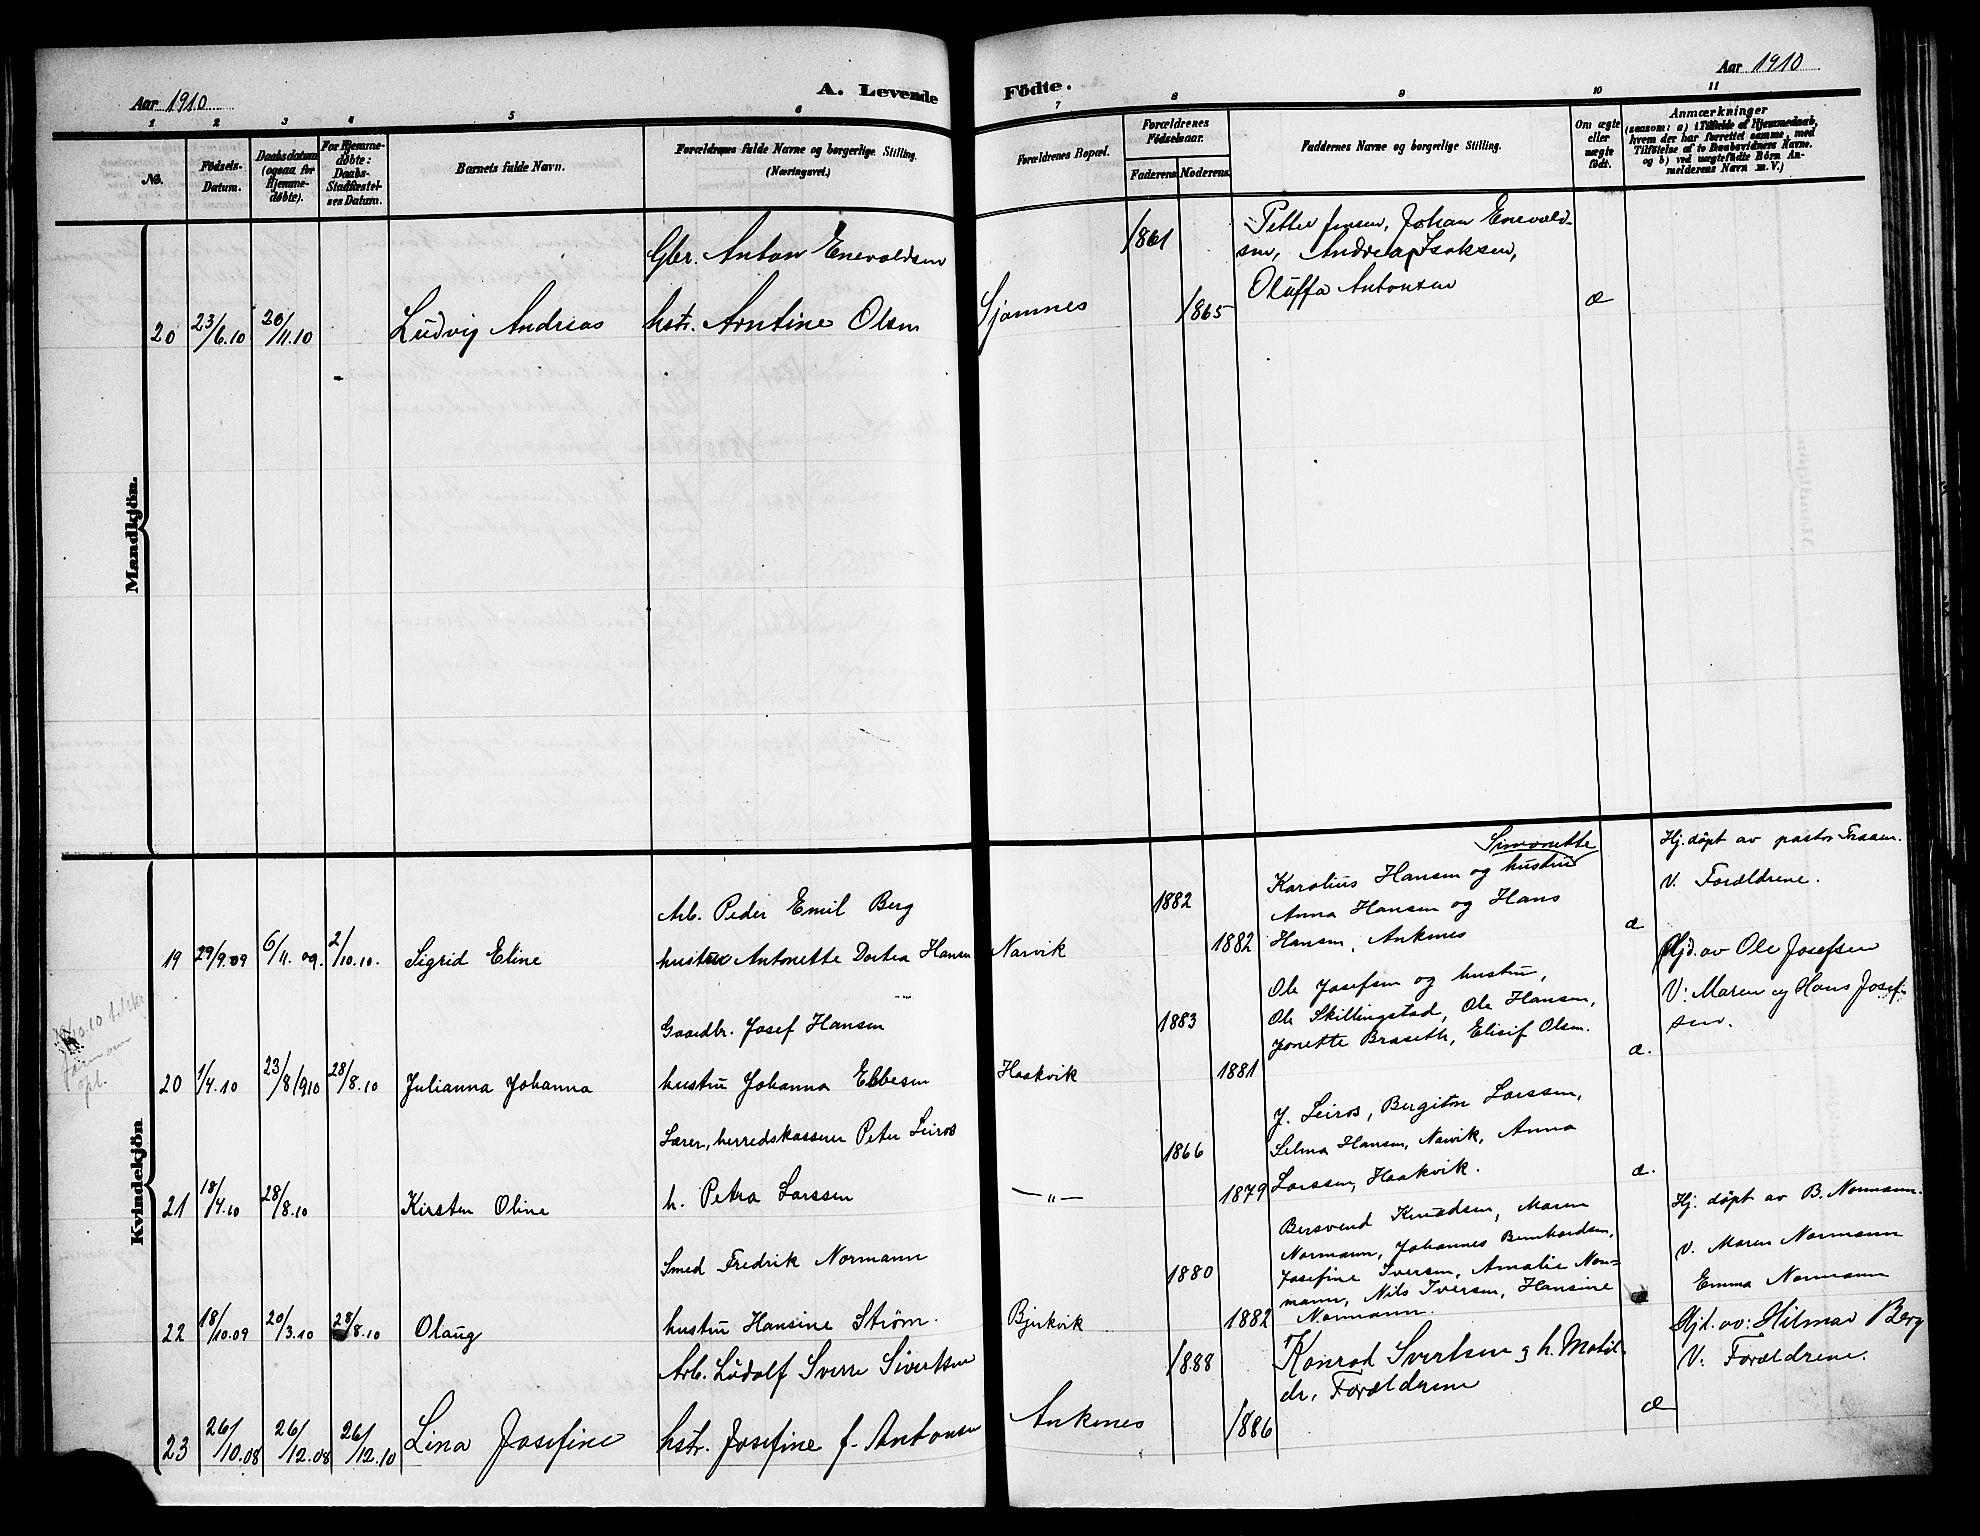 Aar 1910
A. Levende Födte.
Aar 1910
1 2 3 4 5 6 7 8 9 10 11
No.
Födsels-
Datum.
Daabsdatum
(ogsaa for
Hjemme-
døbte).
For Hjemme-
døbte:
Daabs-
Stadfæstel-
ses Datum.
Barnets fulde Navn.
Forældrenes fulde Navne og borgerlige Stilling.
(Næringsvei.)
Forældrenes Bopæl.
Forældrenes
Fødselsaar.
Faderens Moderens
Faddernes Navne og borgerlige Stilling.
Om ægte
eller
uægte
født.
Anmærkninger
(saasom: a) i Tilfælde af Hjemmedaab,
hvem der har forrettet samme, med
Tilföielse af to Daabsvidners Navne.
og b) ved uægtefødte Börn An-
melderens Navn m. V.)
Mandkjön.
20 23/6.10 20/11.10 Ludvig Andreas
Gbr. Anton Enevoldsen
hstr. Arntine Olsen
Sjomnes
1861
1865
Petter Jensen, Johan Enevold-
sen, Andrea Isaksen,
Oluffa Antonsen
æ
Kvindekjön
19 29/9.09 6/11.09. 2/10.10. Sigrid Eline
Arb. Peder Emil Berg
hustru Antonette Dortea Hansen
Narvik
1882
1882
Simonette
Karolius Hansen og hustru
Anna Hansen og Hans
Hansen, Ankenes
æ
Hj. døpt av pastor
V. Forældrene.
20 1/4.10 23/8 1910 28/8.10 Julianna Johanna
Gaardbr. Josef Hansen
hustru Johanna Ebbesen
Haakvik
1883
1881
Ole Josefsen og hustru,
Ole Skillingstad, Ole Hansen,
Jonette Braseth, Elisif Olsen.
æ.
Hjd. av Ole Josefsen
V: Maren og Hans Josef-
sen.
21 18/4.10 28/8.10 Kirsten Oline
Lærer, herredskasserer Peter Leiros
h. Petra Larssen
— " —
1866
1879
J. Leiros, Bergiton Larssen,
Selma Hansen, Narvik, Anna
Larssen, Haakvik.
æ.
22 18/10.09 20/3.10 28/8.10 Olaug
Smed Fredrik Normann
hustru Hansine Strøm.
Bjerkvik
1880
1882
Bersvend Knudsen, Maren
Normann, Johannes Bernhardsen,
Josefine Iversen, Amalie Nor-
mann, Nils Iversen, Hansine
Normann.
Hj. døpt av B. Normann.
V. Maren Normann
Emma Normann
23 26/10.08 26/12.08 26/12.10 Lina Josefine
Arb. Ludolf Sverre Sivertsen
hstr. Josefine f. Antonsen
Ankenes
1888
1886
Konrad Svertsen og h. Matil-
de, Forældrene
æ
Hjd. av: Hilmar Berg
V: Forældrene.